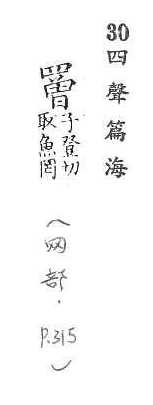 30四聲篇海
罾子登切取魚罔
(网部．P.315)